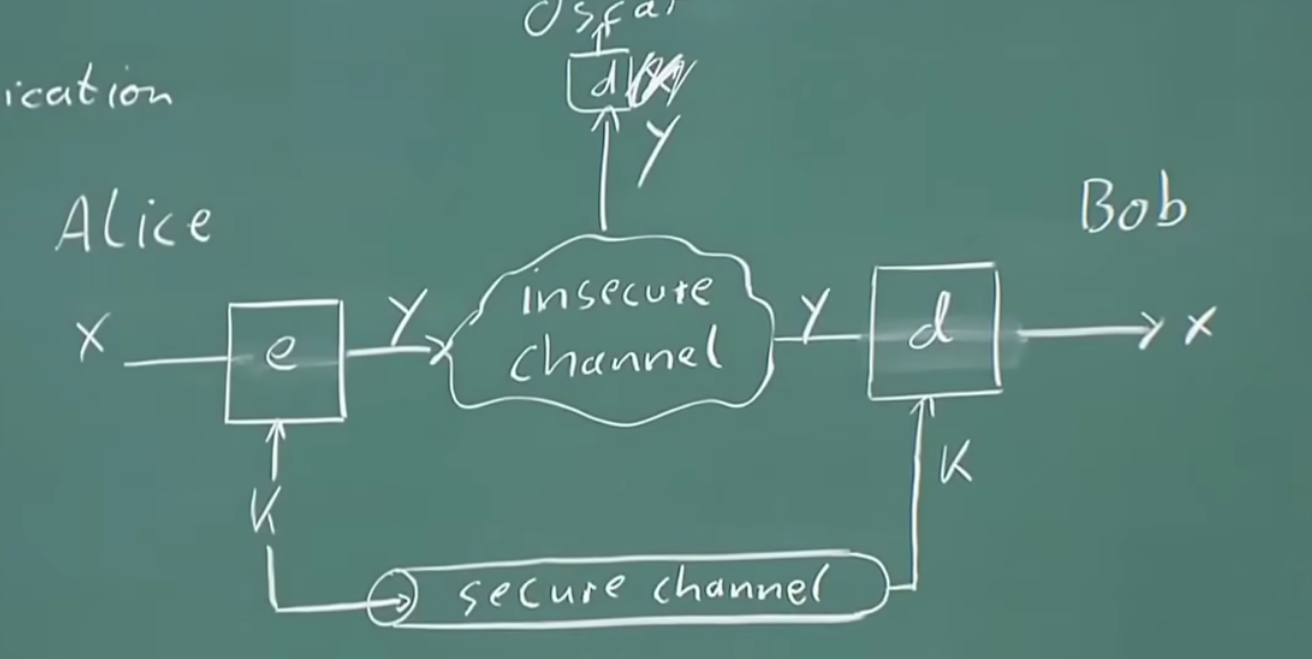 Oscar
ication
d
y
Alice
Bob
x
e
y
insecure
channel
y
d
x
K
K
secure channel